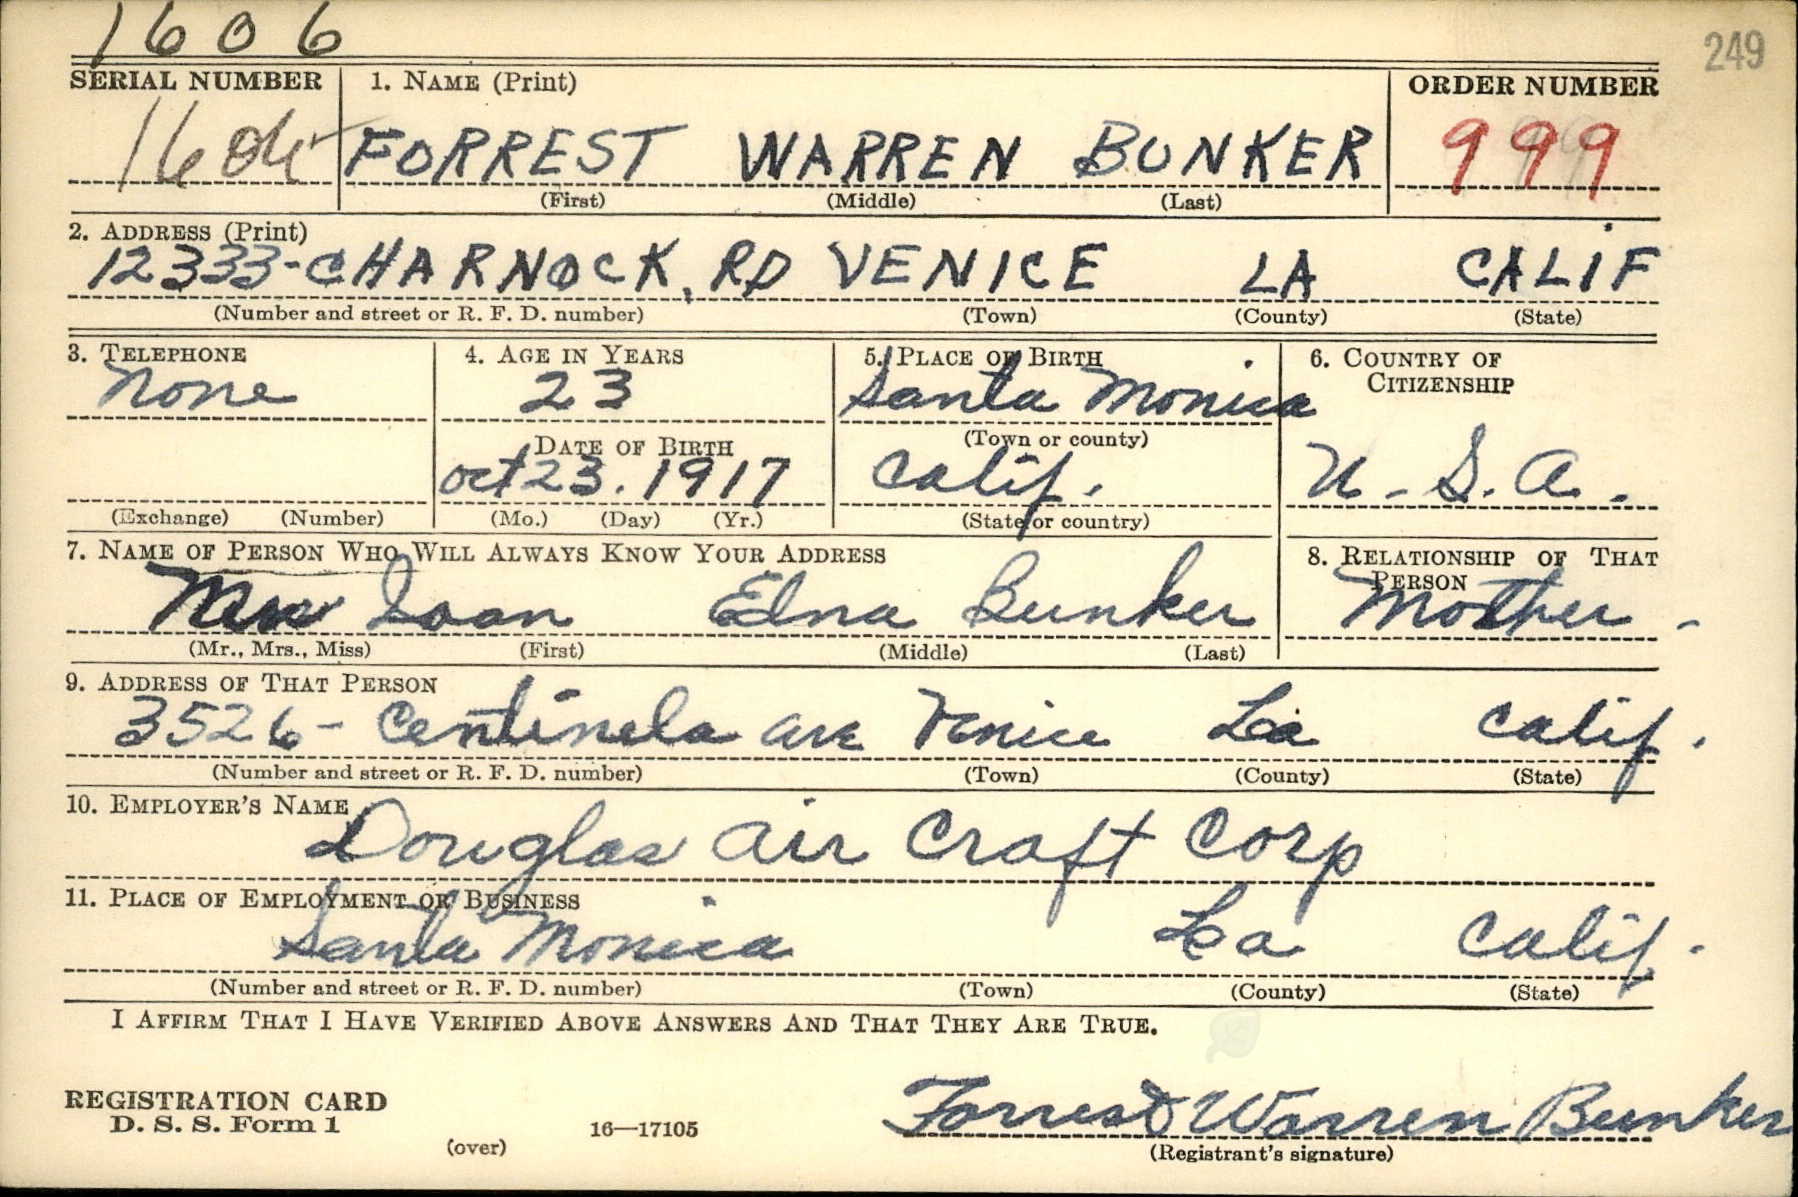 1606
249
SERIAL NUMBER 1. NAME (Print) ORDER NUMBER
FORREST WARREN BUNKER 999
(First) (Middle) (Last)
2. ADDRESS (Print)
12333-CHARNOCK, RD VENICE LA CALIF
(Number and street or R. F. D. number) (Town) (County) (State)
3. TELEPHONE 4. AGE IN YEARS 5. PLACE OF BIRTH 6. COUNTRY OF CITIZENSHIP
None 23 Santa Monica
DATE OF BIRTH (Town or county)
Oct 23. 1917 Calif. U. S. A.
(Exchange) (Number) (Mo.) (Day) (Yr.) (State or country)
7. NAME OF PERSON WHO WILL ALWAYS KNOW YOUR ADDRESS 8. RELATIONSHIP OF THAT PERSON
Edna Bunker Mother -
(Mr., Mrs., Miss) (First) (Middle) (Last)
9. ADDRESS OF THAT PERSON
3526- Centinela ave Venice La Calif.
(Number and street or R. F. D. number) (Town) (County) (State)
10. EMPLOYER'S NAME
Douglas Air Craft Corp
11. PLACE OF EMPLOYMENT OR BUSINESS
Santa Monica La Calif.
(Number and street or R. F. D. number) (Town) (County) (State)
I AFFIRM THAT I HAVE VERIFIED ABOVE ANSWERS AND THAT THEY ARE TRUE.
Forrest Warren Bunker
REGISTRATION CARD
D. S. S. Form 1 (over) 16—17105 (Registrant's signature)